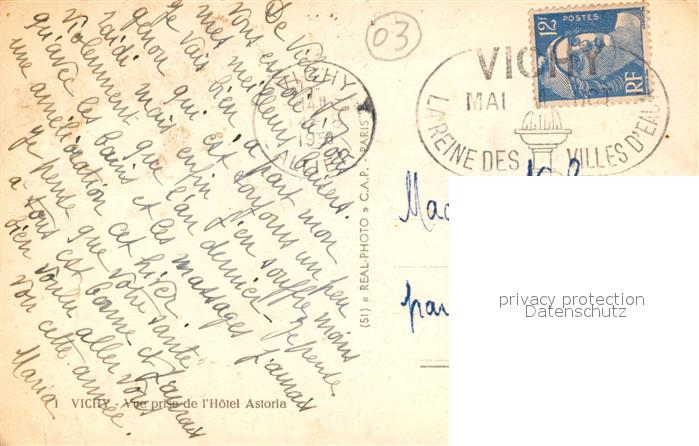 De Vichy je
vous envoie à tous
mes meilleurs baisers.
Je vais bien, à part mon
genou qui est toujours un peu
raidi mais enfin j'en souffre moins
violemment que l'an dernier. Je pense
qu'avec les bains et les massages j'aurai
une amélioration cet hiver.
Je pense que votre santé
à tous est bonne et
bien voulu aller vous
voir cette année.
Maria
1 VICHY - Vue prise de l'Hôtel Astoria
(51) « REAL-PHOTO » C.A.P. - PARIS
03
VICHY
ALLIER
VICHY
MAI
LA REINE DES VILLES D'EAU
12F POSTES
RF
par
privacy protection
Datenschutz